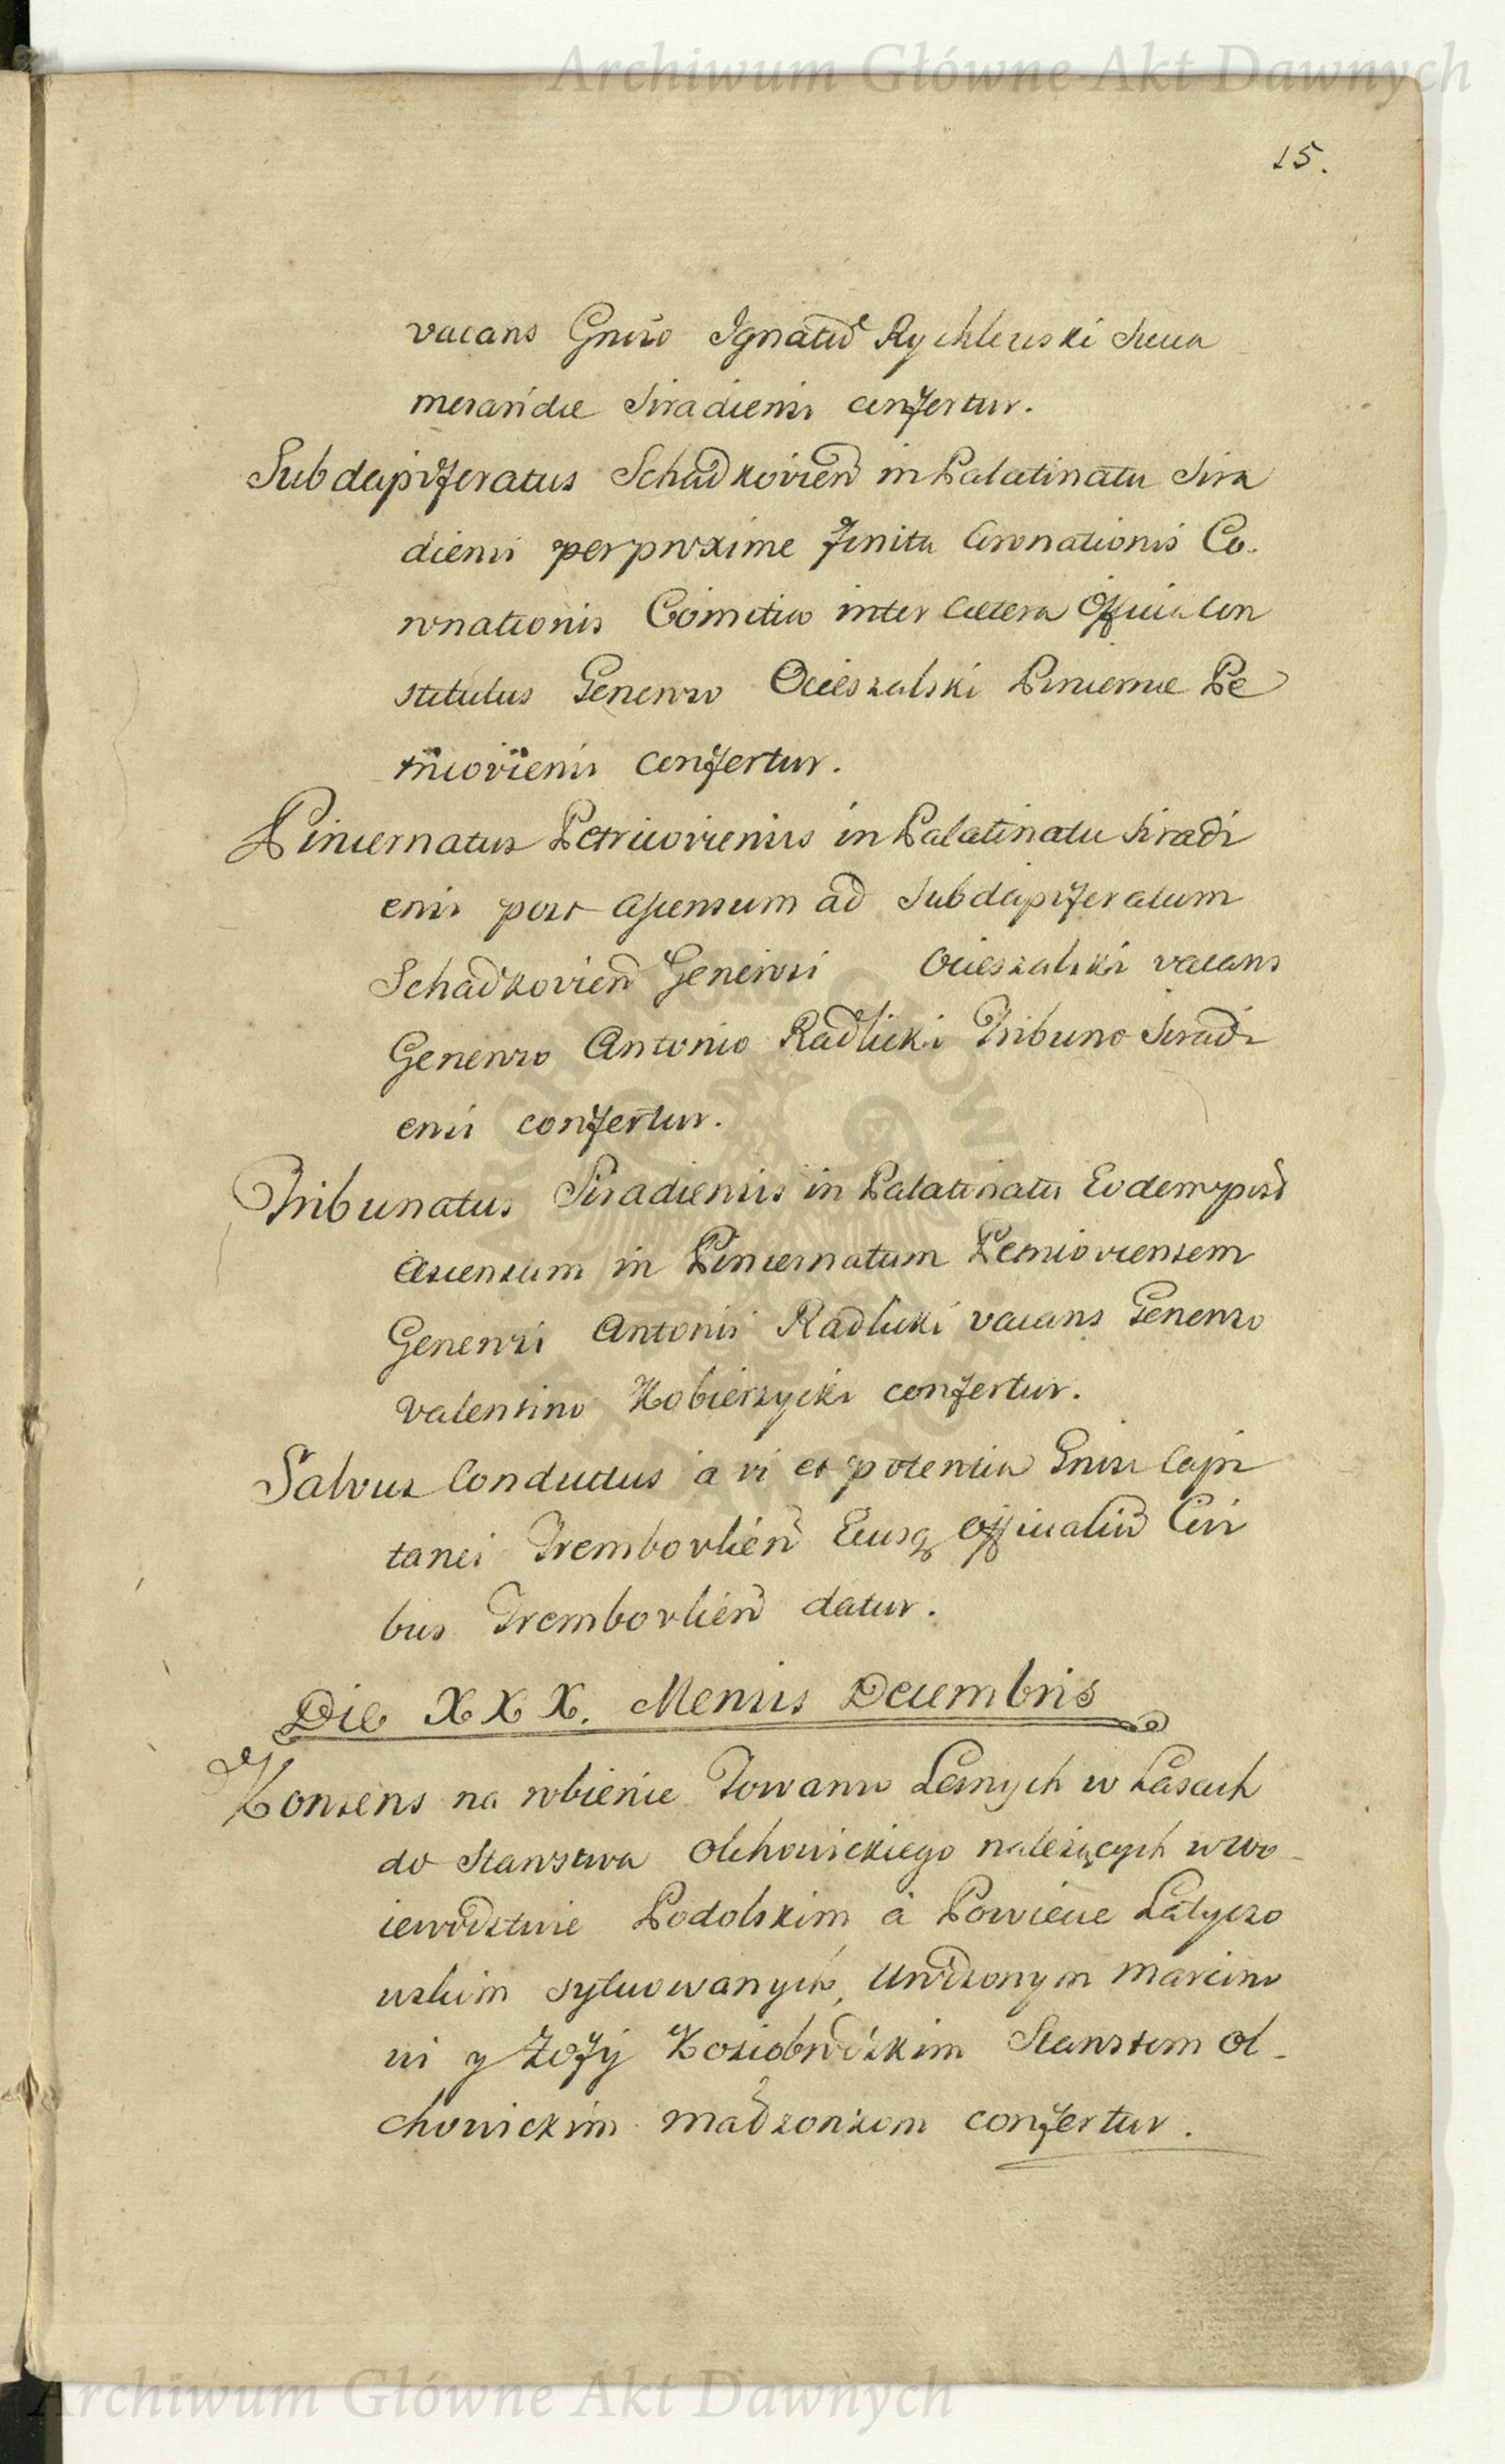 Archiwum Główne Akt Dawnych
15.
vacans Gnŕo Ignatio Rychlewski
merariidae Siradiensi confertur.
Subdapiferatus Schadkovień in Palatinatu Sira
diensi per proxime finita Coronationis Co.
ronationis Comitia inter caetera Officia Con
stitutus Generoso Ocieszalski Pincernae Pe
tricoviensi confertur.
Pincernatus Petricoviensis in Palatinatu Siradi
ensi post ascensum ad Subdapiferatum
Schadkovień Generosi Ocieszalski vacans
Generoso Antonio Radlicki Tribuno Siradi
ensi confertur.
Tribunatus Siradiensis in Palatinatu Eodem post
Ascensum in Pincernatum Petricoviensem
Generosi Antonii Radlicki vacans Generoso
Valentino Kobierzycki confertur.
Salvus Conductus a vi et potentia Gnisi Capi
tanei Trembovlień Eiusq Officialiu Civi
bus Trembovlień datur.
Die XXX. Mensis Decembris
Konsens na robienie Towarow Lesnych w Lasach
do Starostwa Olchowickiego należących w wo-
iewodztwie Podolskim a Powiecie Latyczo
wskim sytuowanych, Urodzonym Marcino
wi y Zofij Kosiobrodzkim Starostom Ol-
chowickim małżonkom confertur.
Archiwum Główne Akt Dawnych